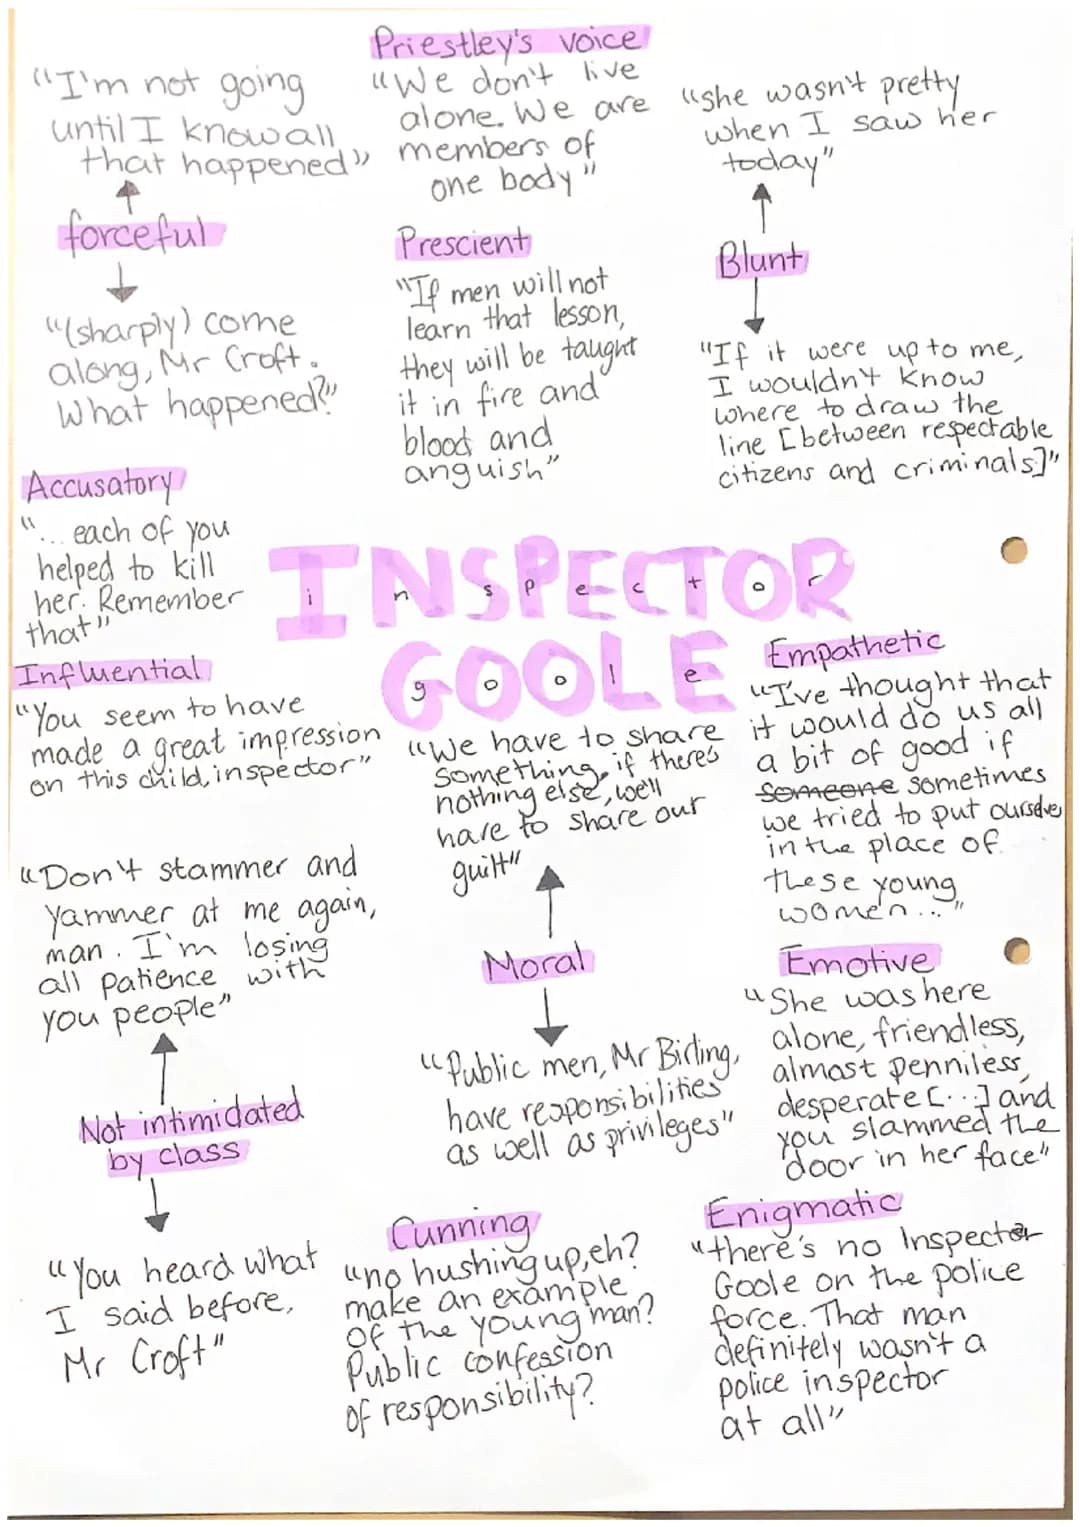 Priestley's voice
"We don't live
alone. We are
members of
one body"
"I'm not going
until I know all
that happened"
forceful
"(sharply) come
along, Mr Croft.
What happened?"
"she wasn't pretty
when I saw her
today"
Blunt
"If it were up to me,
I wouldn't know
where to draw the
line [between respectable
citizens and criminals]"
Prescient
"If men will not
learn that lesson,
they will be taught
it in fire and
blood and
anguish"
Accusatory
"... each of you
helped to kill
her. Remember
that"
INSPECTOR
inspector
GOOLE
goole
Influential
"You seem to have
made a great impression
on this child, inspector"
Empathetic
"I've thought that
it would do us all
a bit of good if
someone sometimes
we tried to put ourselves
in the place of
these young
women..."
"We have to share
something, if there's
nothing else, we'll
have to share our
guilt"
Moral
"Public men, Mr Birling,
have responsibilities
as well as privileges"
"Don't stammer and
yammer at me again,
man. I'm losing
all patience with
you people"
Not intimidated
by class
"You heard what
I said before,
Mr Croft"
Emotive
"She was here
alone, friendless,
almost penniless,
desperate [...] and
you slammed the
door in her face"
Cunning
"no hushing up, eh?
make an example
of the young man?
Public confession
of responsibility?
Enigmatic
"there's no Inspector
Goole on the police
force. That man
definitely wasn't a
police inspector
at all"